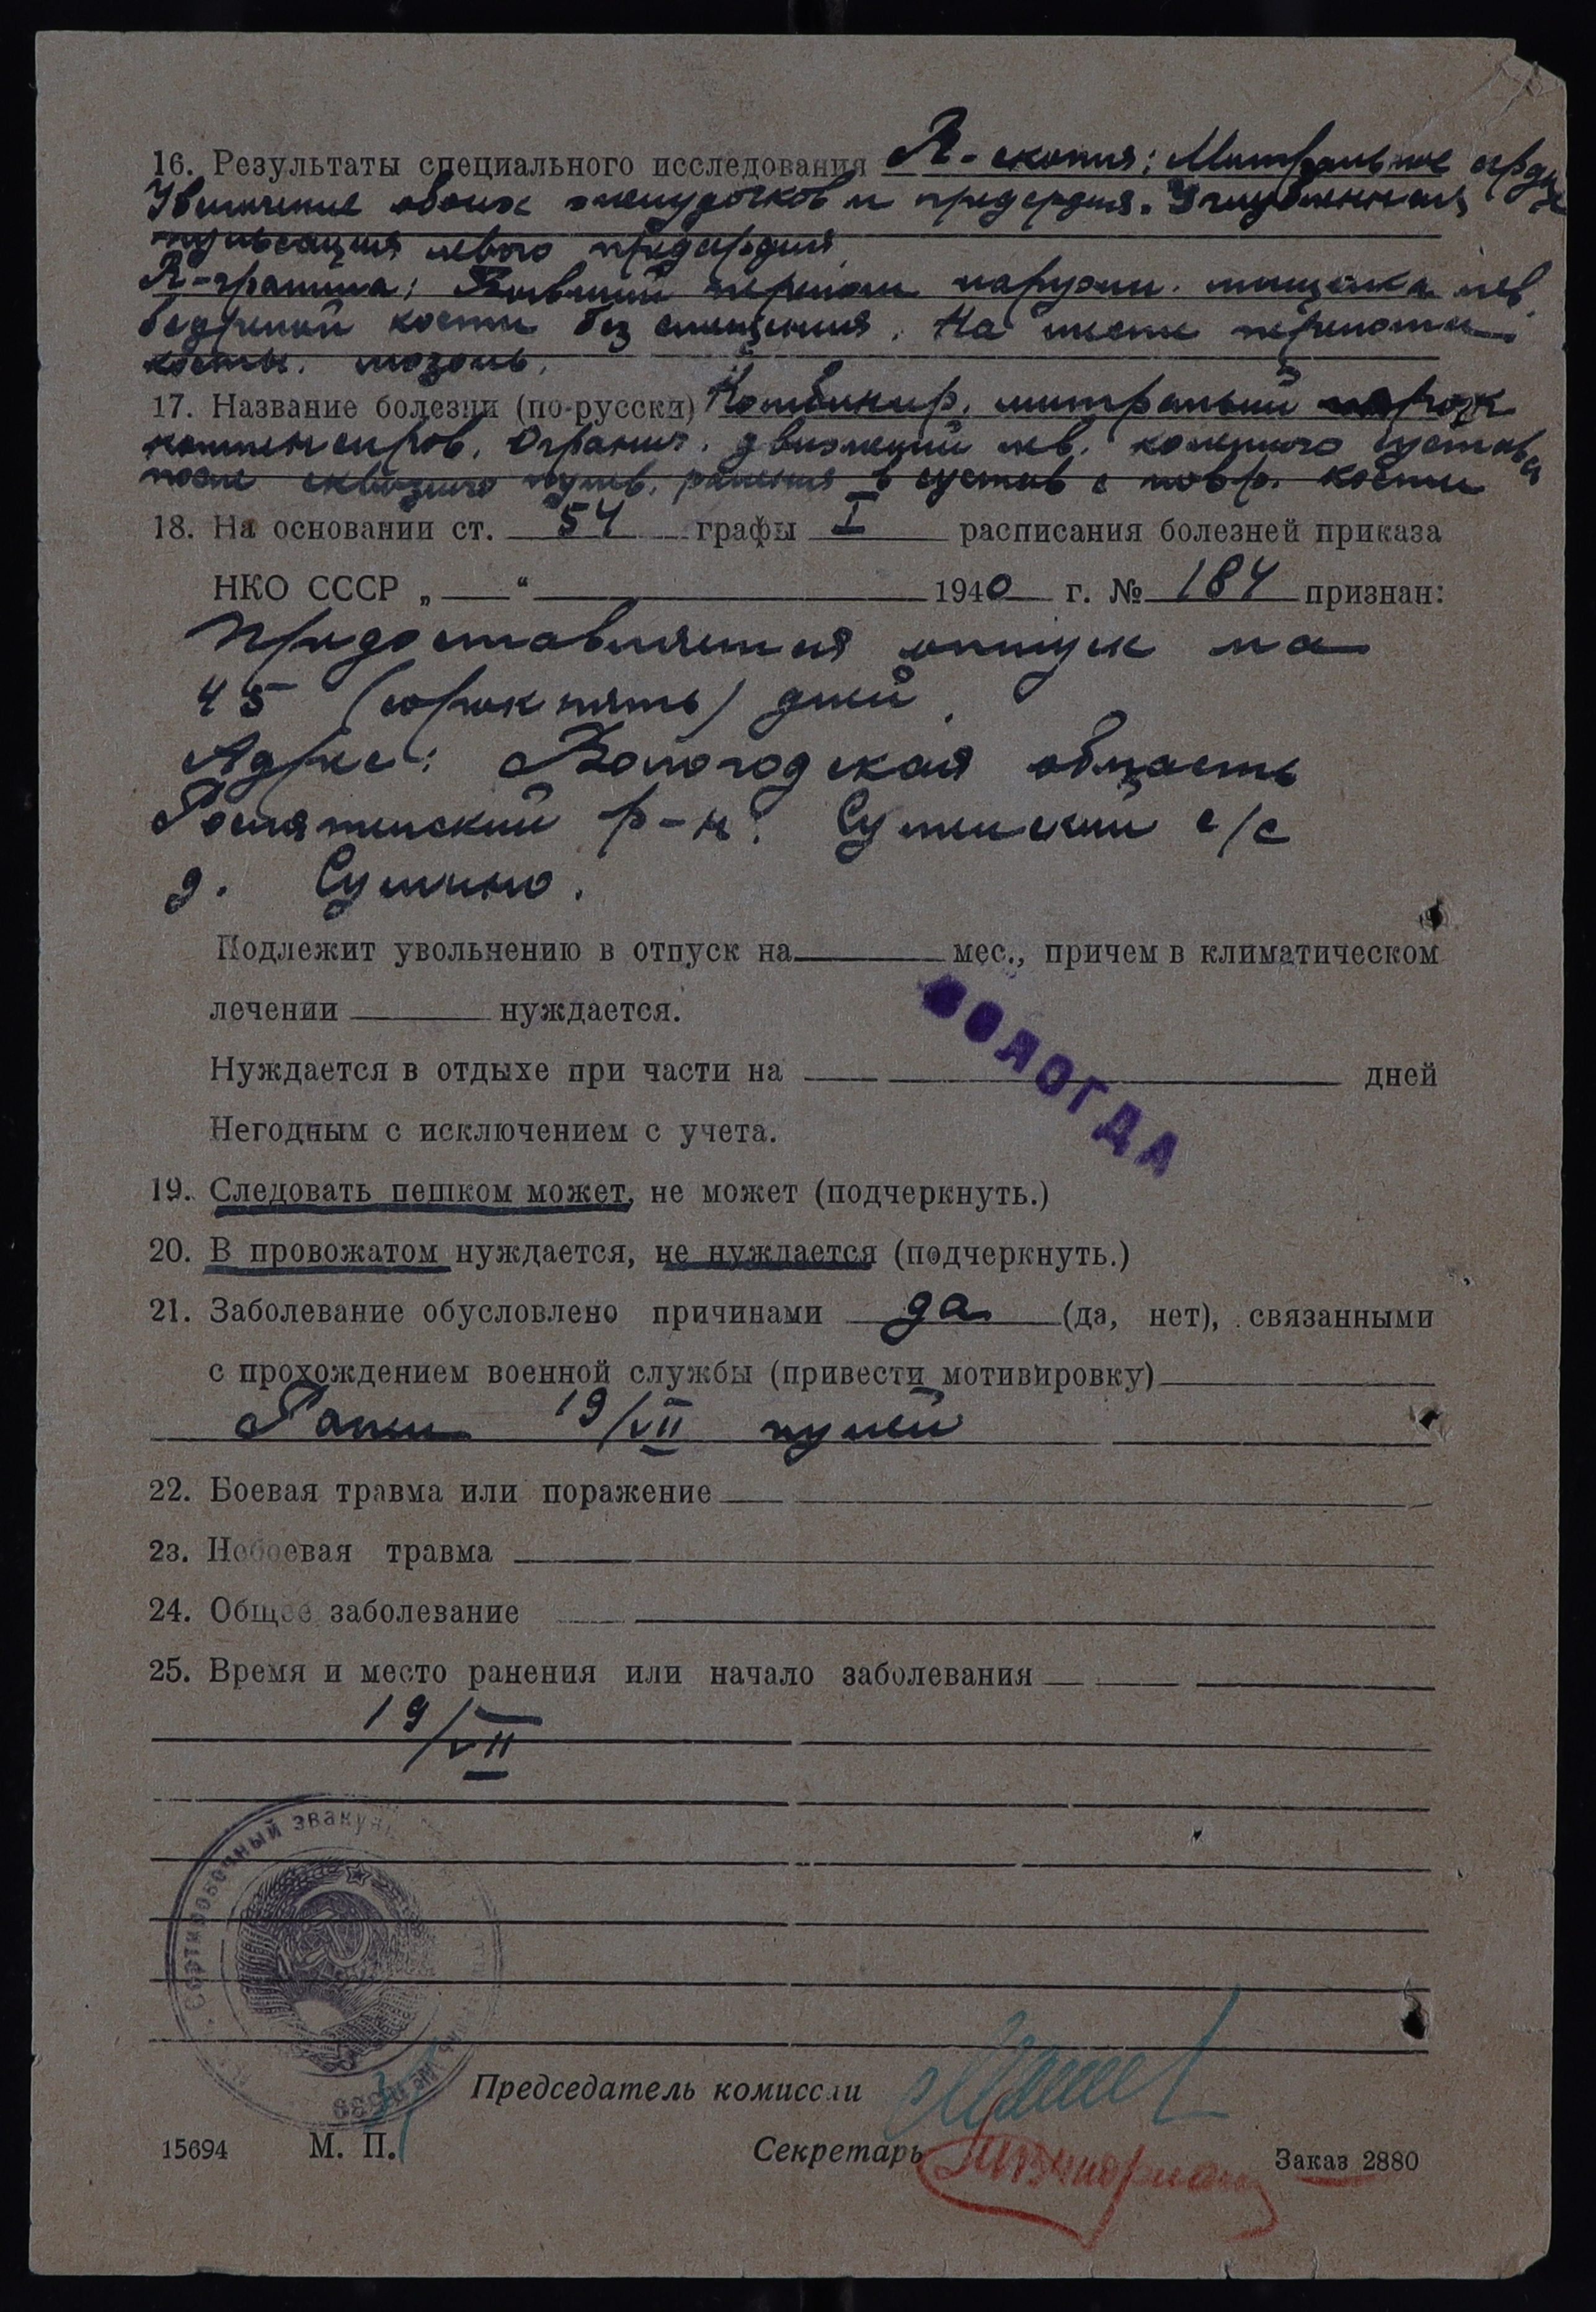 16. Результаты специального исследования R-скопия: Митральное сердце
Увеличение обоих желудочков и предердия. Углубленная
пульсация левого предсердия
R-грамма: Бывший перелом наружн. мыщелка лев.
бедреной кости без смещения. На месте перелома
костн. мозоль.
17. Название болезни (по-русски) Комбинир. митральный порок
компенсиров. Огранич. движений лев. коленного сустава
после сквозного пулев. ранения в сустав с повр. кости
18. На основании ст. 54 графы I расписания болезней приказа
НКО СССР „ “ 1940 г. № 184 признан:
Предоставляется отпуск на
45 (сорок пять) дней.
Адрес: Вологодская область
Рослятинский р-н. с/с
д.
Подлежит увольнению в отпуск на мес., причем в климатическом
лечении нуждается.
Нуждается в отдыхе при части на дней
ВОЛОГДА
Негодным с исключением с учета.
19. Следовать пешком может, не может (подчеркнуть.)
20. В провожатом нуждается, не нуждается (подчеркнуть.)
21. Заболевание обусловлено причинами да (да, нет), связанными
с прохождением военной службы (привести мотивировку)
Ранен 19/VII пулей
22. Боевая травма или поражение
23. Небоевая травма
24. Общее заболевание
25. Время и место ранения или начало заболевания
19/VII
Сортировочный эваку
Председатель комиссии
15694 М. П. Секретарь Заказ 2880